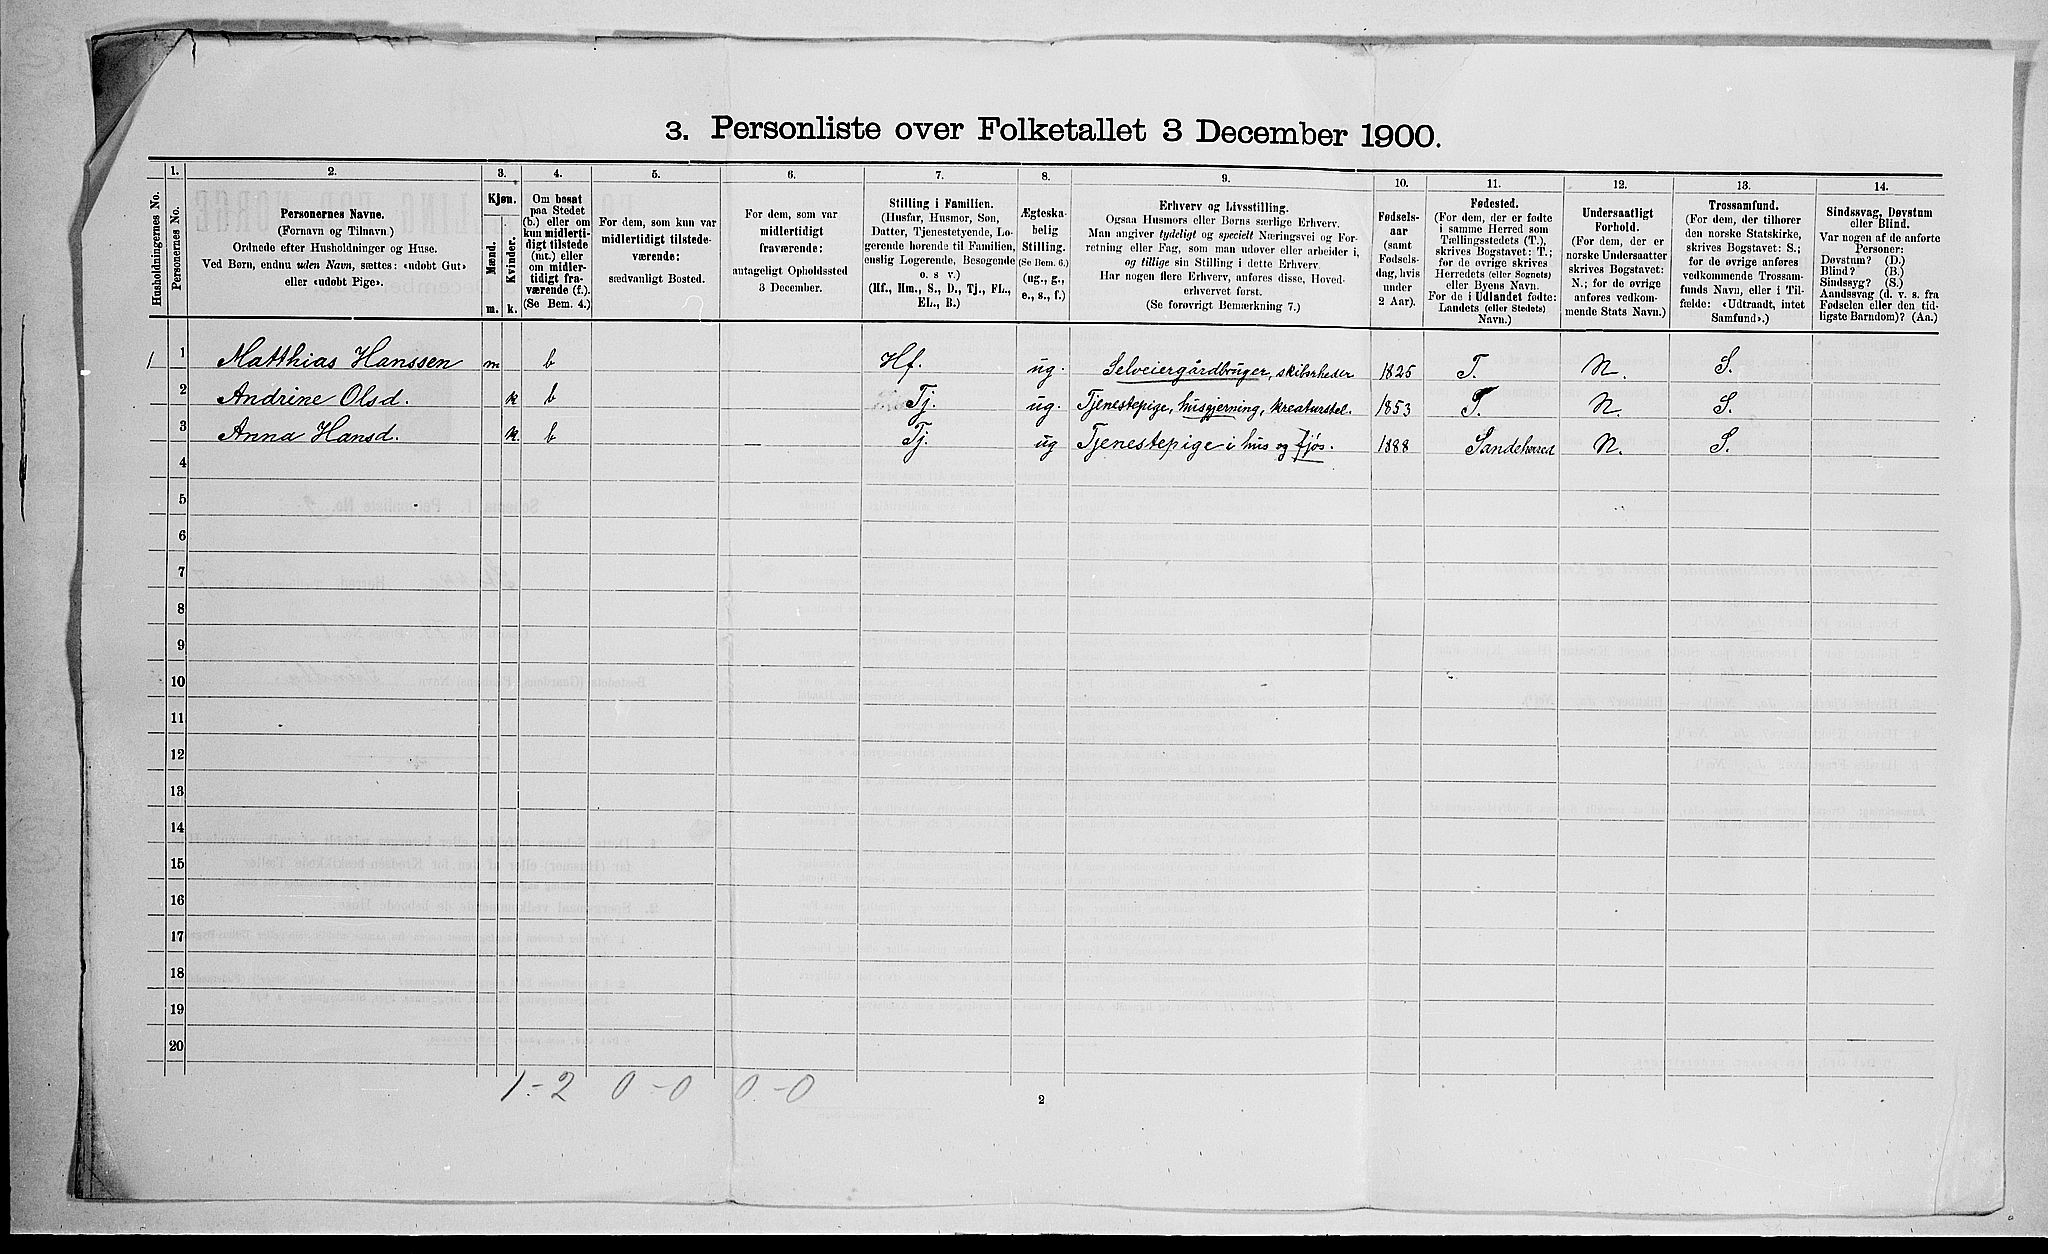 3. Personliste over Folketallet 3 December 1900.
Husholdningernes No.
1.
Personernes No.
2.
Personernes Navne.
(Fornavn og Tilnavn.)
Ordnede efter Husholdninger og Huse.
Ved Børn, endnu uden Navn, sættes: «udobt Gut»
eller «udobt Pige».
3.
Kjøn.
Mænd.
Kvinder.
m. k.
4.
Om bosat
paa Stedet
(b.) eller om
kun midlerti-
digt tilstede
(mt.) eller
om midler-
tidigt fra-
værende (f.).
(Se Bem. 4.)
5.
For dem, som kun var
midlertidigt tilstede-
værende:
sædvanligt Bosted.
6.
For dem, som var
midlertidigt
fraværende:
antageligt Opholdssted
3 December.
7.
Stilling i Familien.
(Husfar, Husmor, Søn,
Datter, Tjenestetyende, Lo-
gerende hørende til Familien,
enslig Logerende, Besøgende
o. s v.)
(Hf., Hm., S., D., Tj., FL.,
EL., B.)
8.
Ægteska-
belig
Stilling.
(Se Bem. 6.)
(ug., g.,
e., s., f.)
9.
Erhverv og Livsstilling.
Ogsaa Husmors eller Børns særlige Erhverv.
Man angiver tydeligt og specielt Næringsvei og For-
retning eller Fag, som man udover eller arbeider i,
og tillige sin Stilling i dette Erhverv.
Har nogen flere Erhverv, anføres disse, Hoved-
erhvervet først.
(Se forøvrigt Bemærkning 7.)
10.
Fødsels-
aar
(samt
Fødsels-
dag, hvis
under
2 Aar).
11.
Fødested.
(For dem, der er fødte
i samme Herred som
Tællingsstedets (T.),
skrives Bogstavet: T.;
for de øvrige skrives
Herredets (eller Sognets)
eller Byens Navn.
For de i Udlandet fødte:
Landets (eller Stedets)
Navn.)
12.
Undersaatligt
Forhold.
(For dem, der er
norske Undersaatter
skrives Bogstavet:
N.; for de øvrige
anføres vedkom-
mende Stats Navn.)
13.
Trossamfund.
(For dem, der tilhører
den norske Statskirke,
skrives Bogstavet: S.;
for de øvrige anføres
vedkommende Trossam-
funds Navn, eller i Til-
fælde: «Udtraadt, intet
Samfund».)
14.
Sindssvag, Døvstum
eller Blind.
Var nogen af de anførte
Personer:
Døvstum? (D.)
Blind? (B.)
Sindssyg? (S.)
Aandssvag (d. v. s. fra
Fødselen eller den tid-
ligste Barndom)? (Aa.)
1 1 Matthias Hanssen m b Hf. ug. Selveiergårdbruger, skibsrheder 1825 T. N. S.
2 Andrine Olsd. k b Tj. ug. Tjenestepige, husgjerning, kreaturstel. 1853 T. N. S.
3 Anna Hansd. k. b Tj. ug Tjenestepige i hus og fjøs. 1888 Sandeherred N. S.
4
5
6
7
8
9
10
11
12
13
14
15
16
17
18
19
20
1-2 0-0 0-0
2